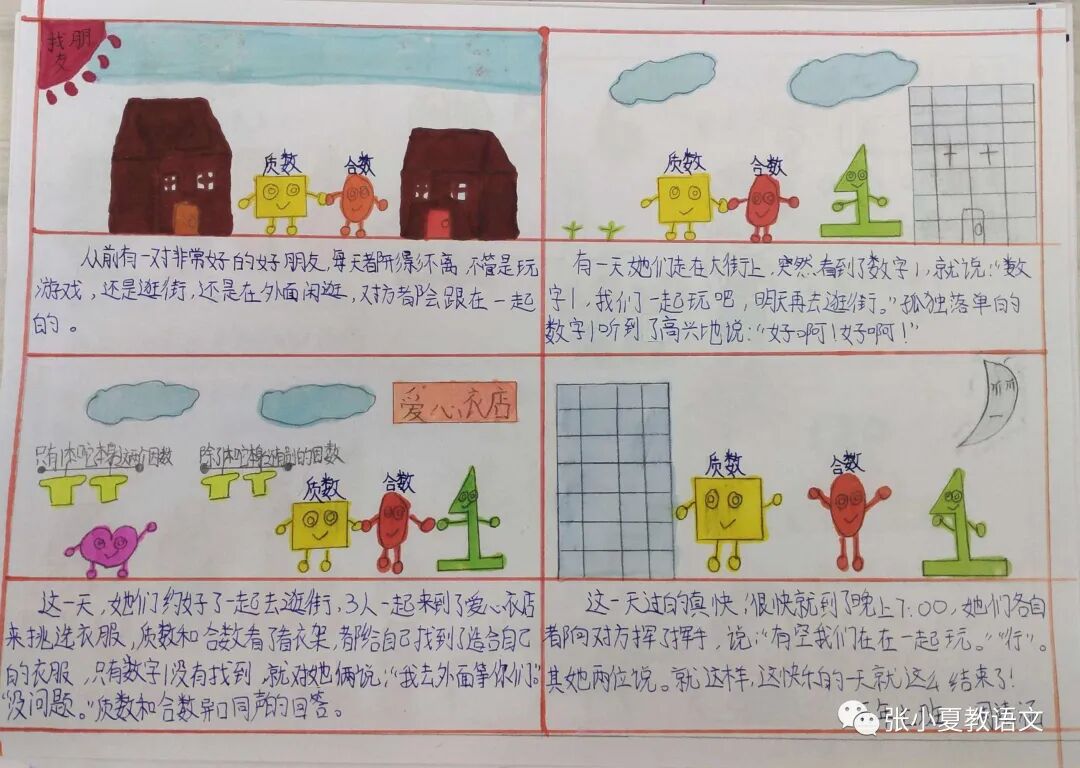 找朋
友
质数
合数
从前有一对非常好的好朋友，每天都形影不离，不管是玩
游戏，还是逛街，还是在外面闲逛，对方都会跟在一起
的。
质数
合数
有一天她们走在大街上，突然看到了数字1，就说：“数
字1，我们一起玩吧，明天再去逛街。”孤独落单的
数字1听到了高兴地说：“好啊！好啊！”
爱心衣店
只有1本咜本身这两个因数
除了1本咜本身还有别的因数
质数
合数
这一天，她们约好了一起去逛街，3人一起来到了爱心衣店
来挑选衣服，质数和合数看了看衣架，都给自己找到了适合自己
的衣服，只有数字1没有找到，就对她俩说：“我去外面等你们。”
“没问题。”质数和合数异口同声的回答。
质数
合数
这一天过的真快，很快就到了晚上7:00，她们各自
都向对方挥了挥手，说：“有空我们在在一起玩。”“行”。
其她两位说。就这样，这快乐的一天就这么结束了！
张小夏教语文